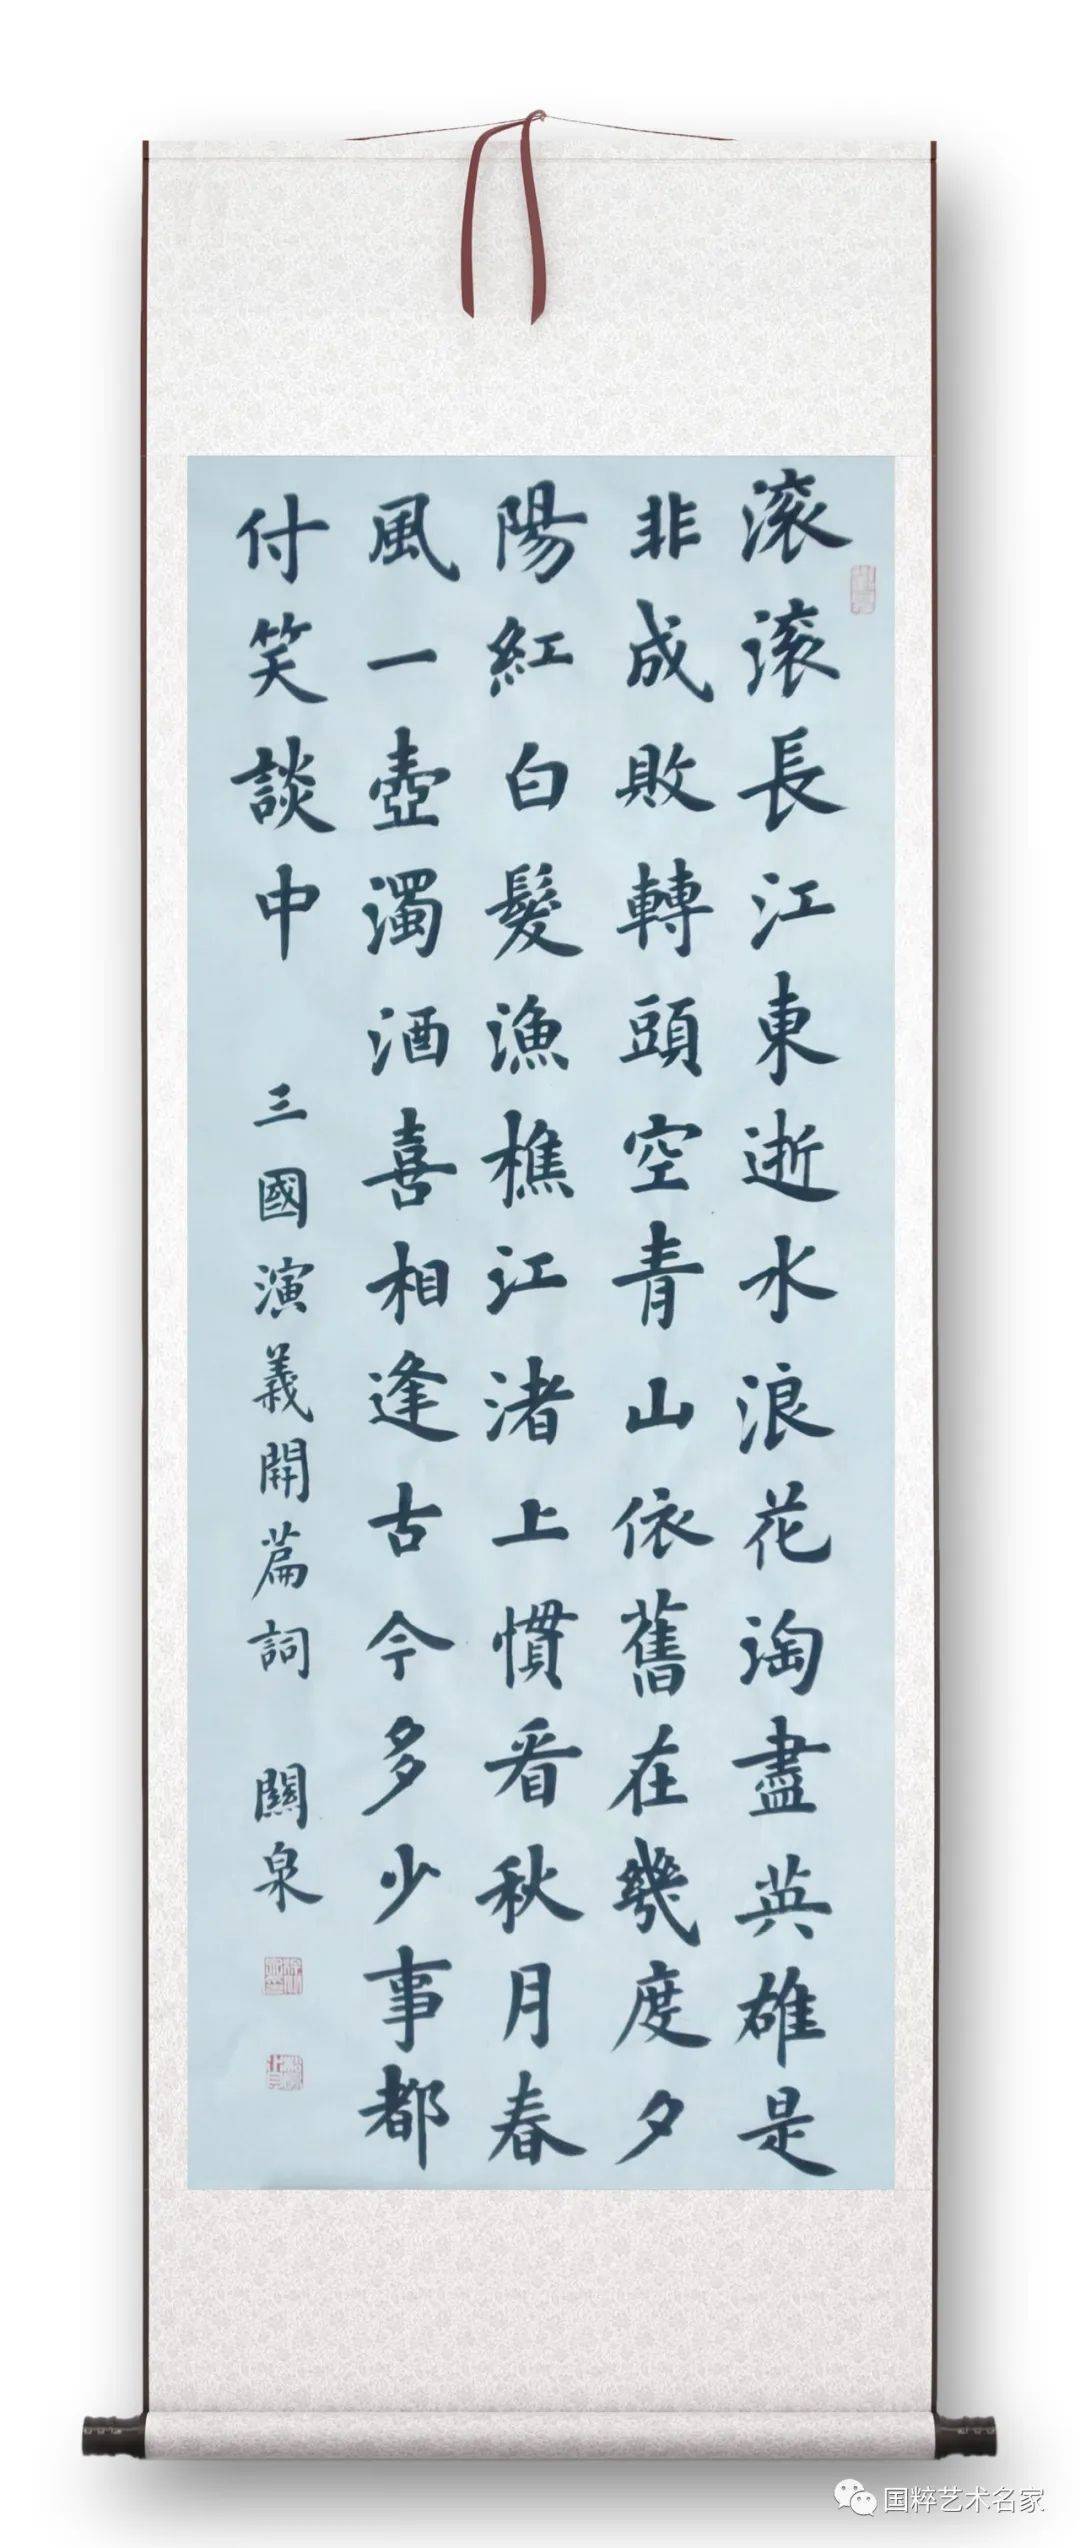 滚滚長江東逝水浪花淘盡英雄是
非成敗轉頭空青山依舊在幾度夕
陽紅白髮漁樵江渚上慣看秋月春
風一壺濁酒喜相逢古今多少事都
付笑談中
三國演義開篇詞
關泉
国粹艺术名家